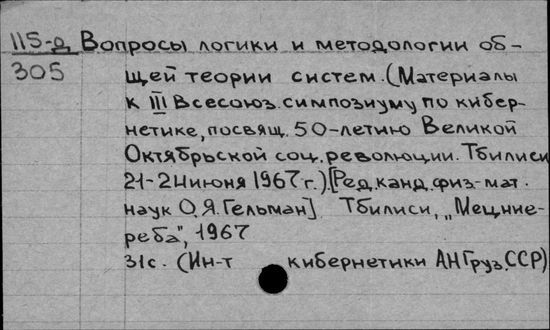 115-д Вопросы логики и методологии об-
305 щей теории систем. (Материалы
к III Всесоюз. симпозиуму по кибер-
нетике, посвящ. 50-летию Великой
Октябрьской соц. революции. Тбилиси
21-24 июня 1967 г.). [Ред. канд. физ-мат.
наук О.Я. Гельман]. Тбилиси, „Мецние-
реба", 1967
31с. (Ин-т кибернетики АН Груз. ССР)